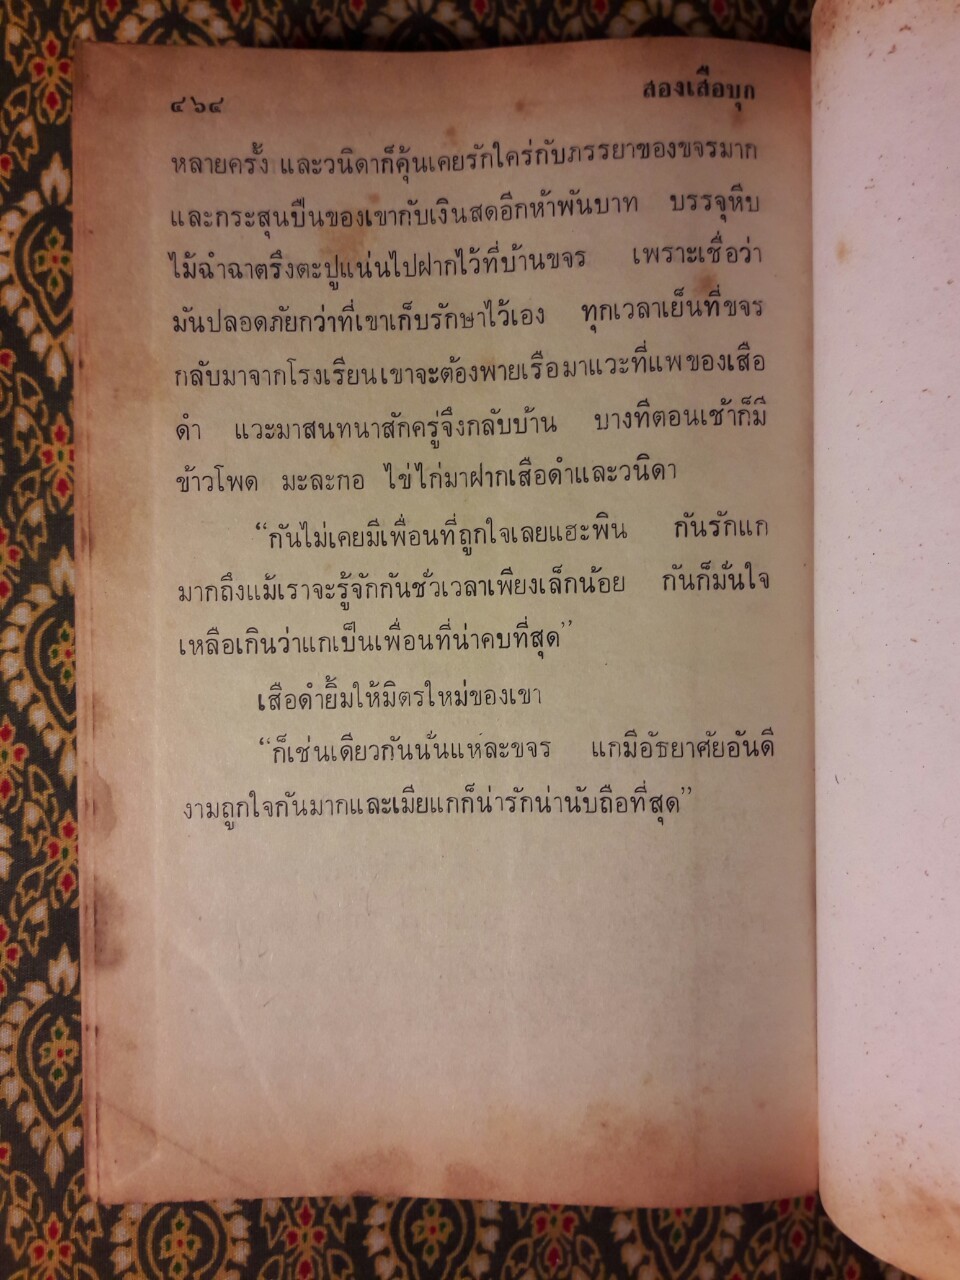 ๔๖๔
สองเสือบุก
หลายครั้ง และวนิดาก็คุ้นเคยรักใคร่กับภรรยาของขจรมาก
และกระสุนปืนของเขากับเงินสดอีกห้าพันบาท บรรจุหีบ
ไม้ฉำฉาตรึงตะปูแน่นไปฝากไว้ที่บ้านขจร เพราะเชื่อว่า
มันปลอดภัยกว่าที่เขาเก็บรักษาไว้เอง ทุกเวลาเย็นที่ขจร
กลับมาจากโรงเรียนเขาจะต้องพายเรือมาแวะที่แพของเสือ
ดำ แวะมาสนทนาสักครู่จึงกลับบ้าน บางทีตอนเช้าก็มี
ข้าวโพด มะละกอ ไข่ไก่มาฝากเสือดำและวนิดา
“กันไม่เคยมีเพื่อนที่ถูกใจเลยแฮะพิน กันรักแก
มากถึงแม้เราจะรู้จักกันชั่วเวลาเพียงเล็กน้อย กันก็มั่นใจ
เหลือเกินว่าแกเป็นเพื่อนที่น่าคบที่สุด”
เสือดำยิ้มให้มิตรใหม่ของเขา
“ก็เช่นเดียวกันนั่นแหละขจร แกมีอัธยาศัยอันดี
งามถูกใจกันมากและเมียแกก็น่ารักน่านับถือที่สุด”